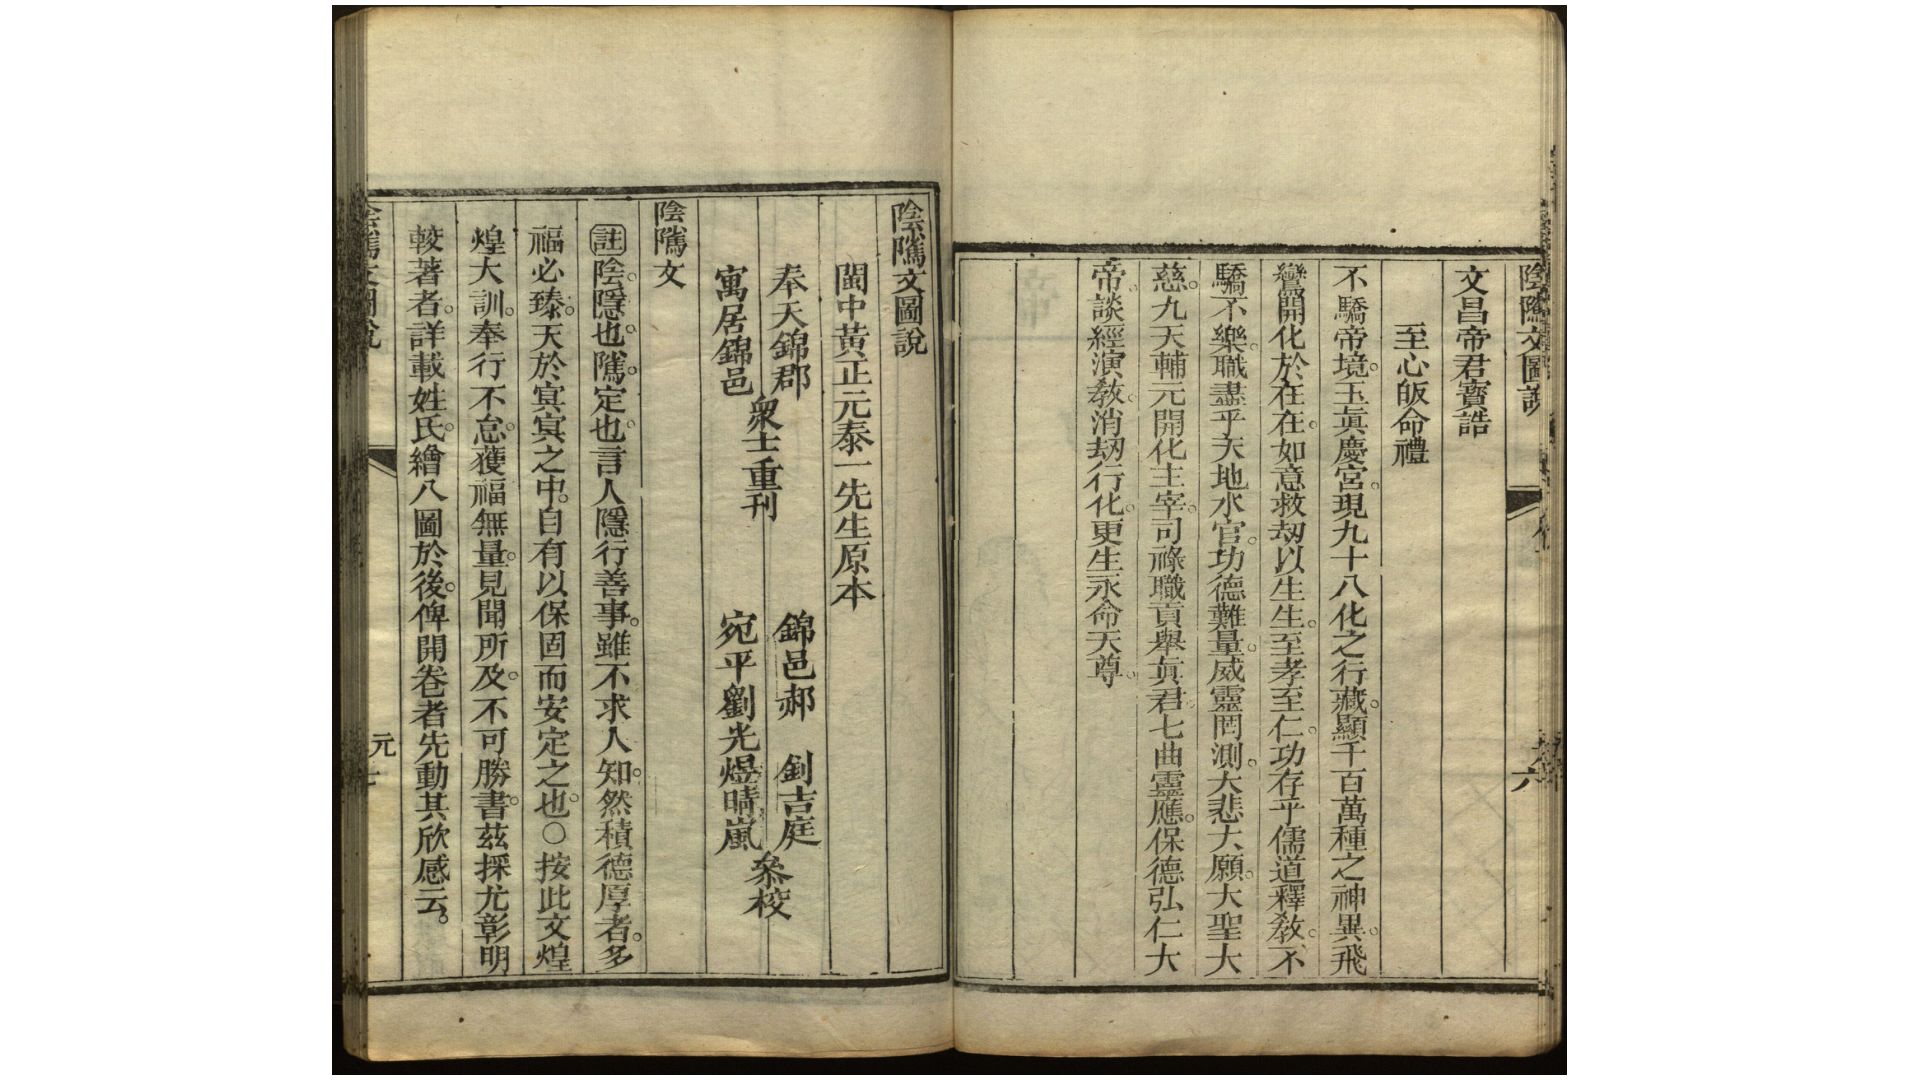 陰隲文圖說
六
文昌帝君寶誥
至心皈命禮
不驕帝境。玉眞慶宮。現九十八化之行藏。顯千百萬種之神異。飛
鸞開化於在在。如意救刼以生生。至孝至仁。功存乎儒道釋教。不
驕不樂。職盡乎天地水官。功德難量。威靈罔測。大悲大願。大聖大
慈。九天輔元開化主宰。司祿職貢舉眞君。七曲靈應。保德弘仁大
帝。談經演教。消刼行化。更生永命天尊。
陰隲文圖說
閩中黃正元泰一先生原本
奉天錦郡
寓居錦邑
衆士重刊
錦邑郝 釗吉庭
宛平劉光煜晴嵐
叅校
陰隲文
註陰。隱也。隲。定也。言人隱行善事。雖不求人知。然積德厚者。多
福必臻。天於冥冥之中。自有以保固而安定之也。○按此文煌
煌大訓。奉行不怠。獲福無量。見聞所及。不可勝書。茲採尤彰明
較著者。詳載姓氏。繪八圖於後。俾開卷者先動其欣感云。
陰隲文圖說
元
七